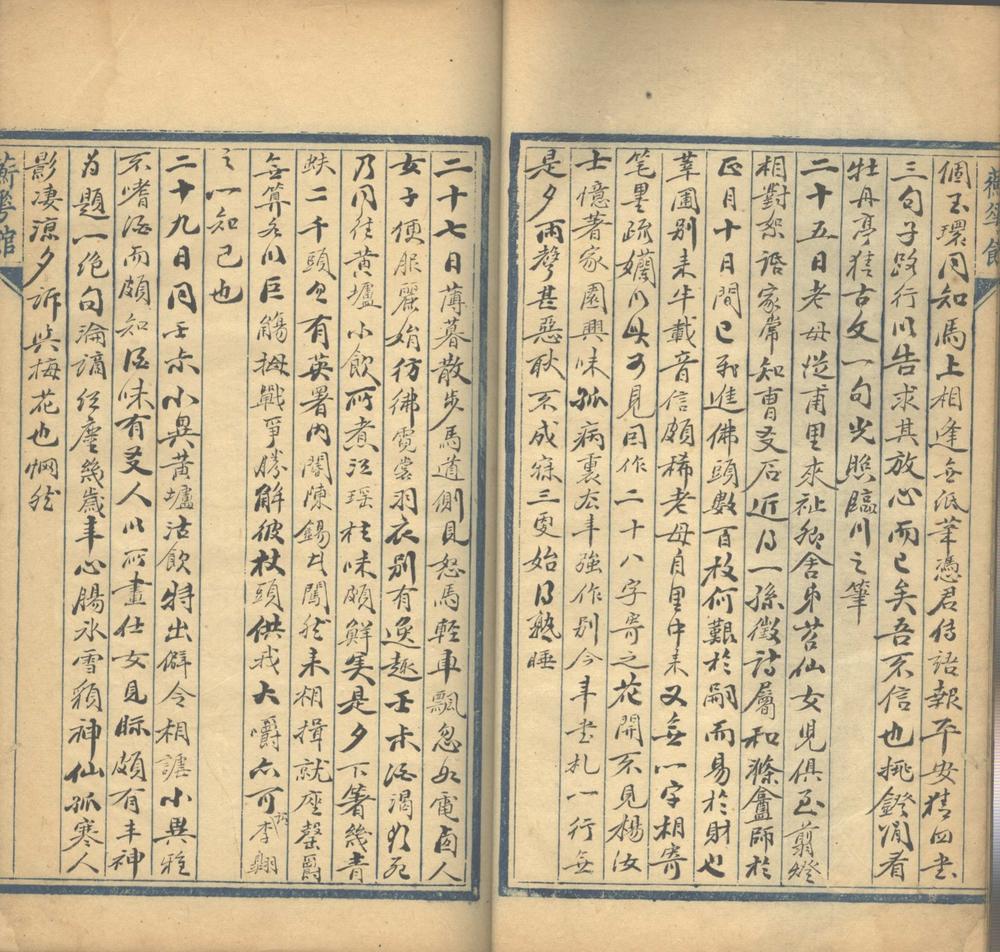 蘅華館
個玉環同知馬上相逢無紙筆憑君傳語報平安猜四書
三句子路行以告求其放心而已矣吾不信也挑鐙閒看
牡丹亭猜古文一句光照臨川之筆
二十五日老母從甫里來祉卿舍弟苕仙女兒俱至翦燈
相對絮語家常知曹友石近得一孫徵詩屬和滌盦師於
正月十日間已進佛頭數百枚何艱於嗣而易於財也
莘圃別来半載音信頗稀老母自里中来又無一字相寄
笔墨疏嬾以此可見因作二十八字寄之花開不見楊汝
士憶著家園興味孤病裏去年強作別今年書札一行無
是夕雨聲甚惡耿不成寐三更始得熟睡
二十七日薄暮散步馬道側見怒馬輕車飄忽如電西人
女子便服麗娟彷彿霓裳羽衣別有逸趣壬叔酒渴欲死
乃同往黃壚小飲所煮江瑤柱味頗鮮美是夕下箸幾青
蚨二千頭忽有英署內閽陳錫闖然来相揖就座罄爵
無算各以巨觴拇戰爭勝解彼杖頭供我大嚼亦可李翺
之一知己也
二十九日同壬叔小異黃壚沽飲特出僻令相謔小異雅
不嗜酒而頗知酒味有友人以所畫仕女見眎頗有丰神
為題一絕句淪謫紅塵幾歲年心腸冰雪神仙孤寒人
影淒涼夕訴與梅花也惘然
蘅華館